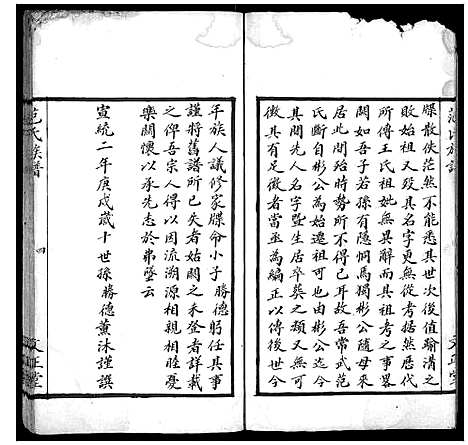 范氏族譜
牒散佚茫然不能悉其世次後值瑜清之
敗始祖又歿其名字更無從考據然歷代
所傳王氏祖妣無異辭而具祖考之事畧
闕如吾子若孫有隱恫焉獨彬公隨母來
居此間殆時勢所不得已耳故吾常武范
氏斷自彬公為始遷祖可也由彬公以下
其間先人名字暨生居卒葬之類又無可
徵其有足徵者當亟為編正以傳後世今
文正堂
年族人議修家牒命小子勝德躬任其事
謹將舊譜所已失者姑闕之未登者詳載
之俾吾宗人得以因流溯源相親相睦憂
樂關懷以承先志於弗墜云
宣統二年庚戌歲十世孫勝德薰沐謹譔
范氏族譜
四
文正堂